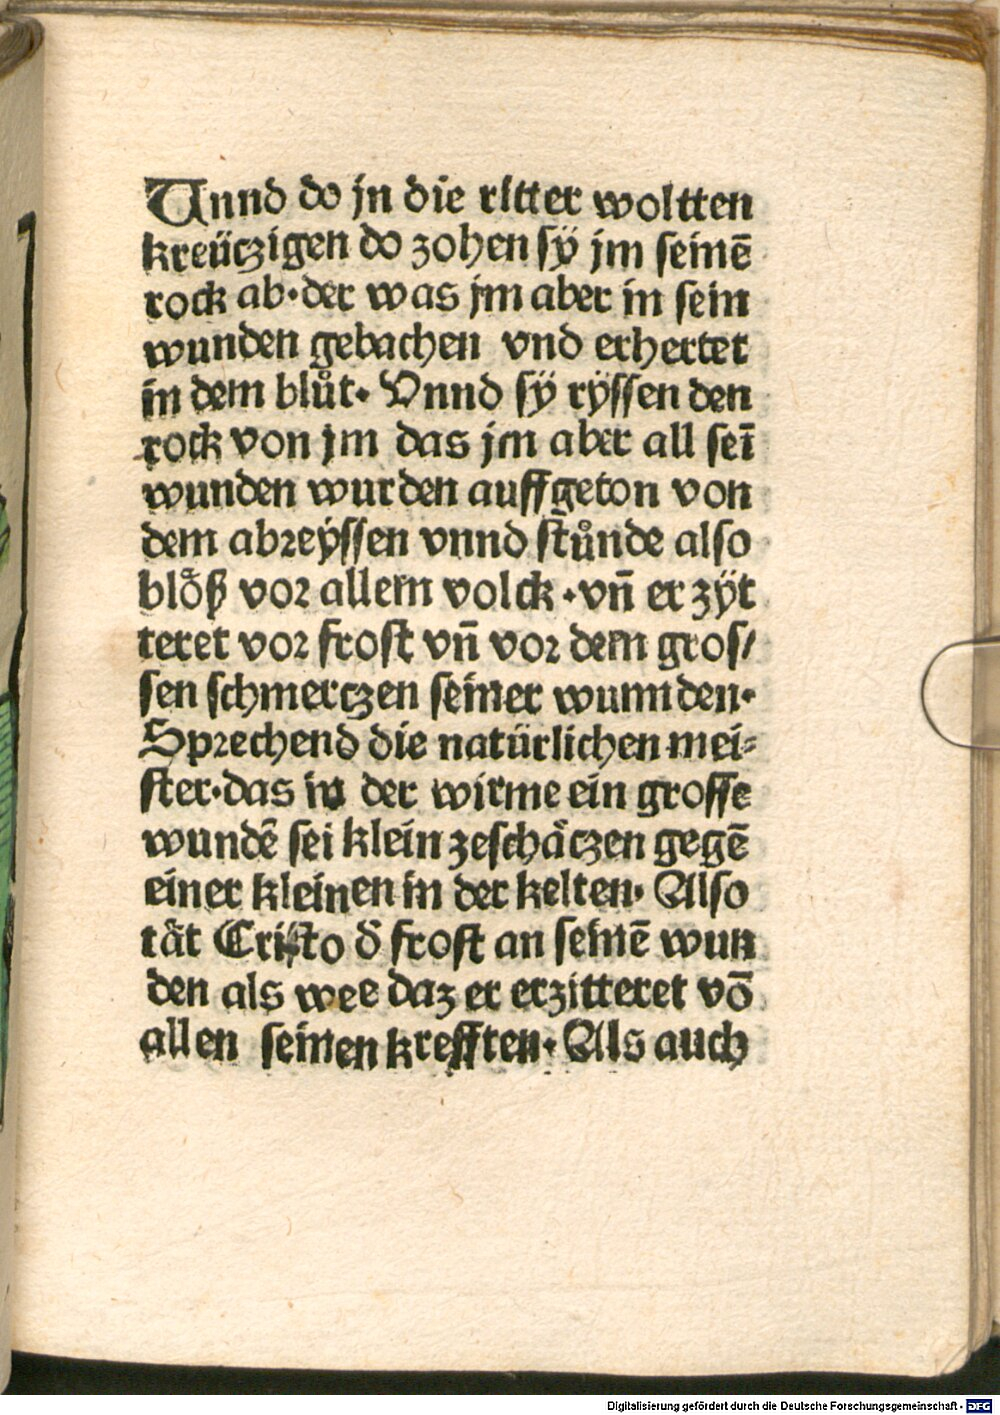 Unnd do jn die ritter woltten
kreüczigen do zohen sÿ jm seinē
rock ab·der was jm aber in sein
wunden gebachen vnd erhertet
in dem blůt· Vnnd sÿ rÿssen den
rock von jm das jm aber all seī
wunden wurden auffgeton von
dem abreÿssen vnnd stůnde also
blöß vor allem volck ·vn̄ er zÿt
teret vor frost vn̄ vor dem gros/
sen schmerczen seiner wunnden·
Sprechend die natürlichen mei⸗
ster·das in der wirme ein grosse
wundē sei klein zeschäczen gegē
einer kleinen in der kelten· Also
tät Cristo d̄ frost an seinē wun
den als wee daz er erzitteret vō
allen seinen krefften· Als auch
Digitalisierung gefördert durch die Deutsche Forschungsgemeinschaft - DFG